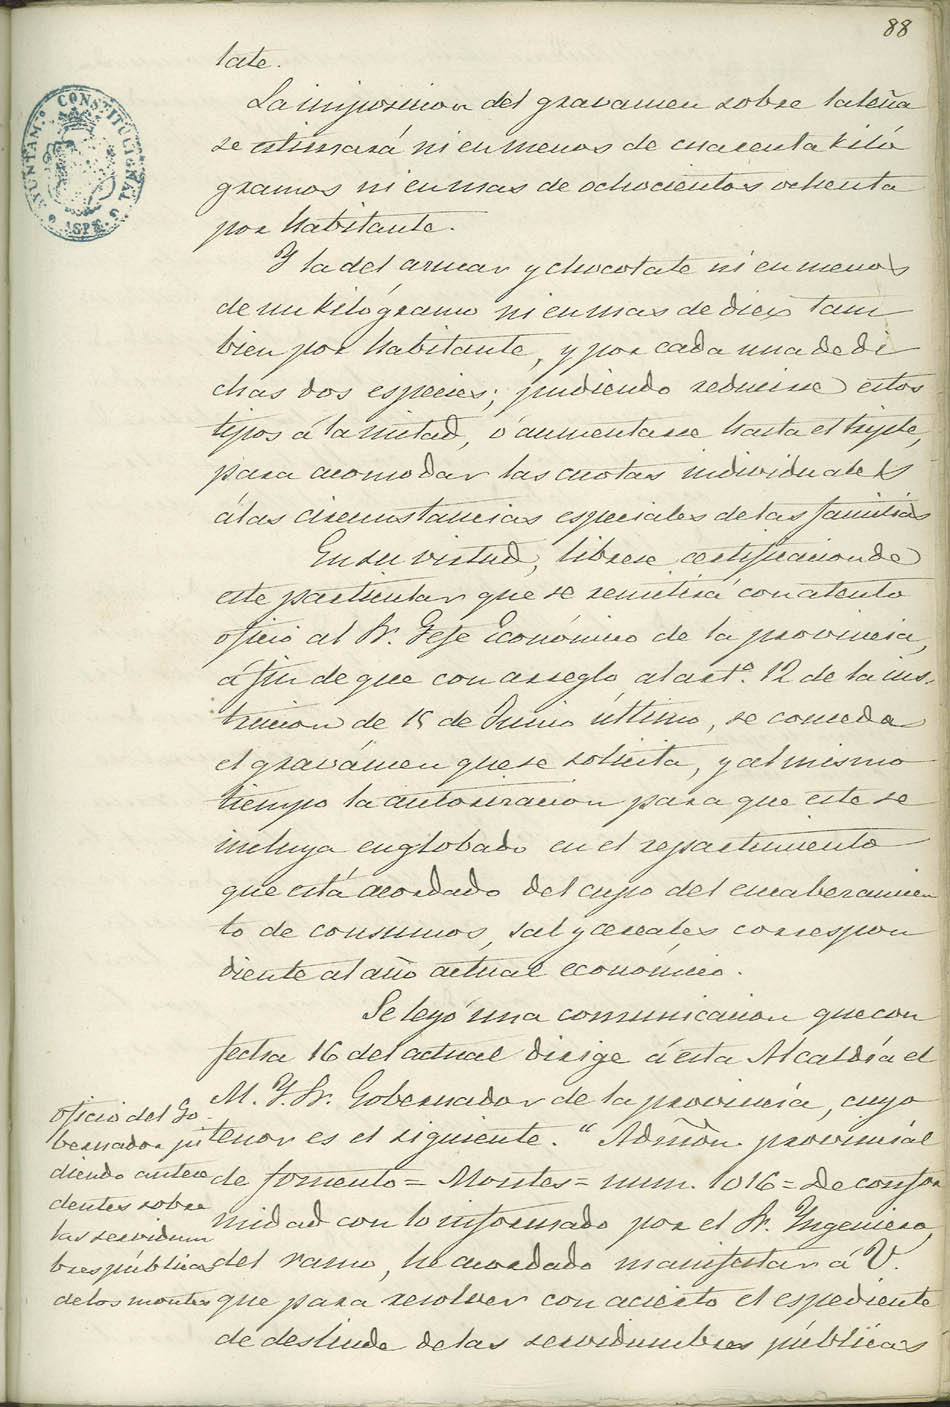 88
late.
La imposicion del gravamen sobre la leña
se estimará ni en menos de cuarenta kiló
gramos ni en mas de ochocientos ochenta
por habitante.
Y la del azucar y chocolate ni en menos
de un kilógramo ni en mas de diez tam
bien por habitante, y por cada una de di
chas dos especies; pudiendo reducirse estos
tipos á la mitad, ó aumentarse hasta el triple,
para acomodar las cuotas individuales
á las circunstancias especiales de las familias
En su virtud, librese certificacion de
este particular que se remitirá con atento
oficio al Sr. Gefe Económico de la provincia,
á fin de que con arreglo al artº. 12 de la ins-
truccion de 15 de Junio último, se conceda
el gravámen que se solicita, y al mismo
tiempo la autorizacion para que este se
incluya englobado en el repartimiento
que está acordado del cupo del encabezamien
to de consumos, sal y cereales correspon
diente al año actual económico.
Se leyó una comunicacion que con
fecha 16 del actual dirige á esta Alcaldía el
M. Y. Sr. Gobernador de la provincia, cuyo
tenor es el siguiente. "Admõn. provincial
de fomento = Montes = num. 1016 = De confor
midad con lo informado por el Sr. Yngeniero
del ramo, he acordado manifestar á V.
que para resolver con acierto el espediente
de deslinde de las servidumbres públicas
Oficio del Go-
bernador pi
diendo antece
dentes sobre
las servidum
bres públicas
de los montes
AYUNTAM.º CONSTITUCIONAL
ASPE